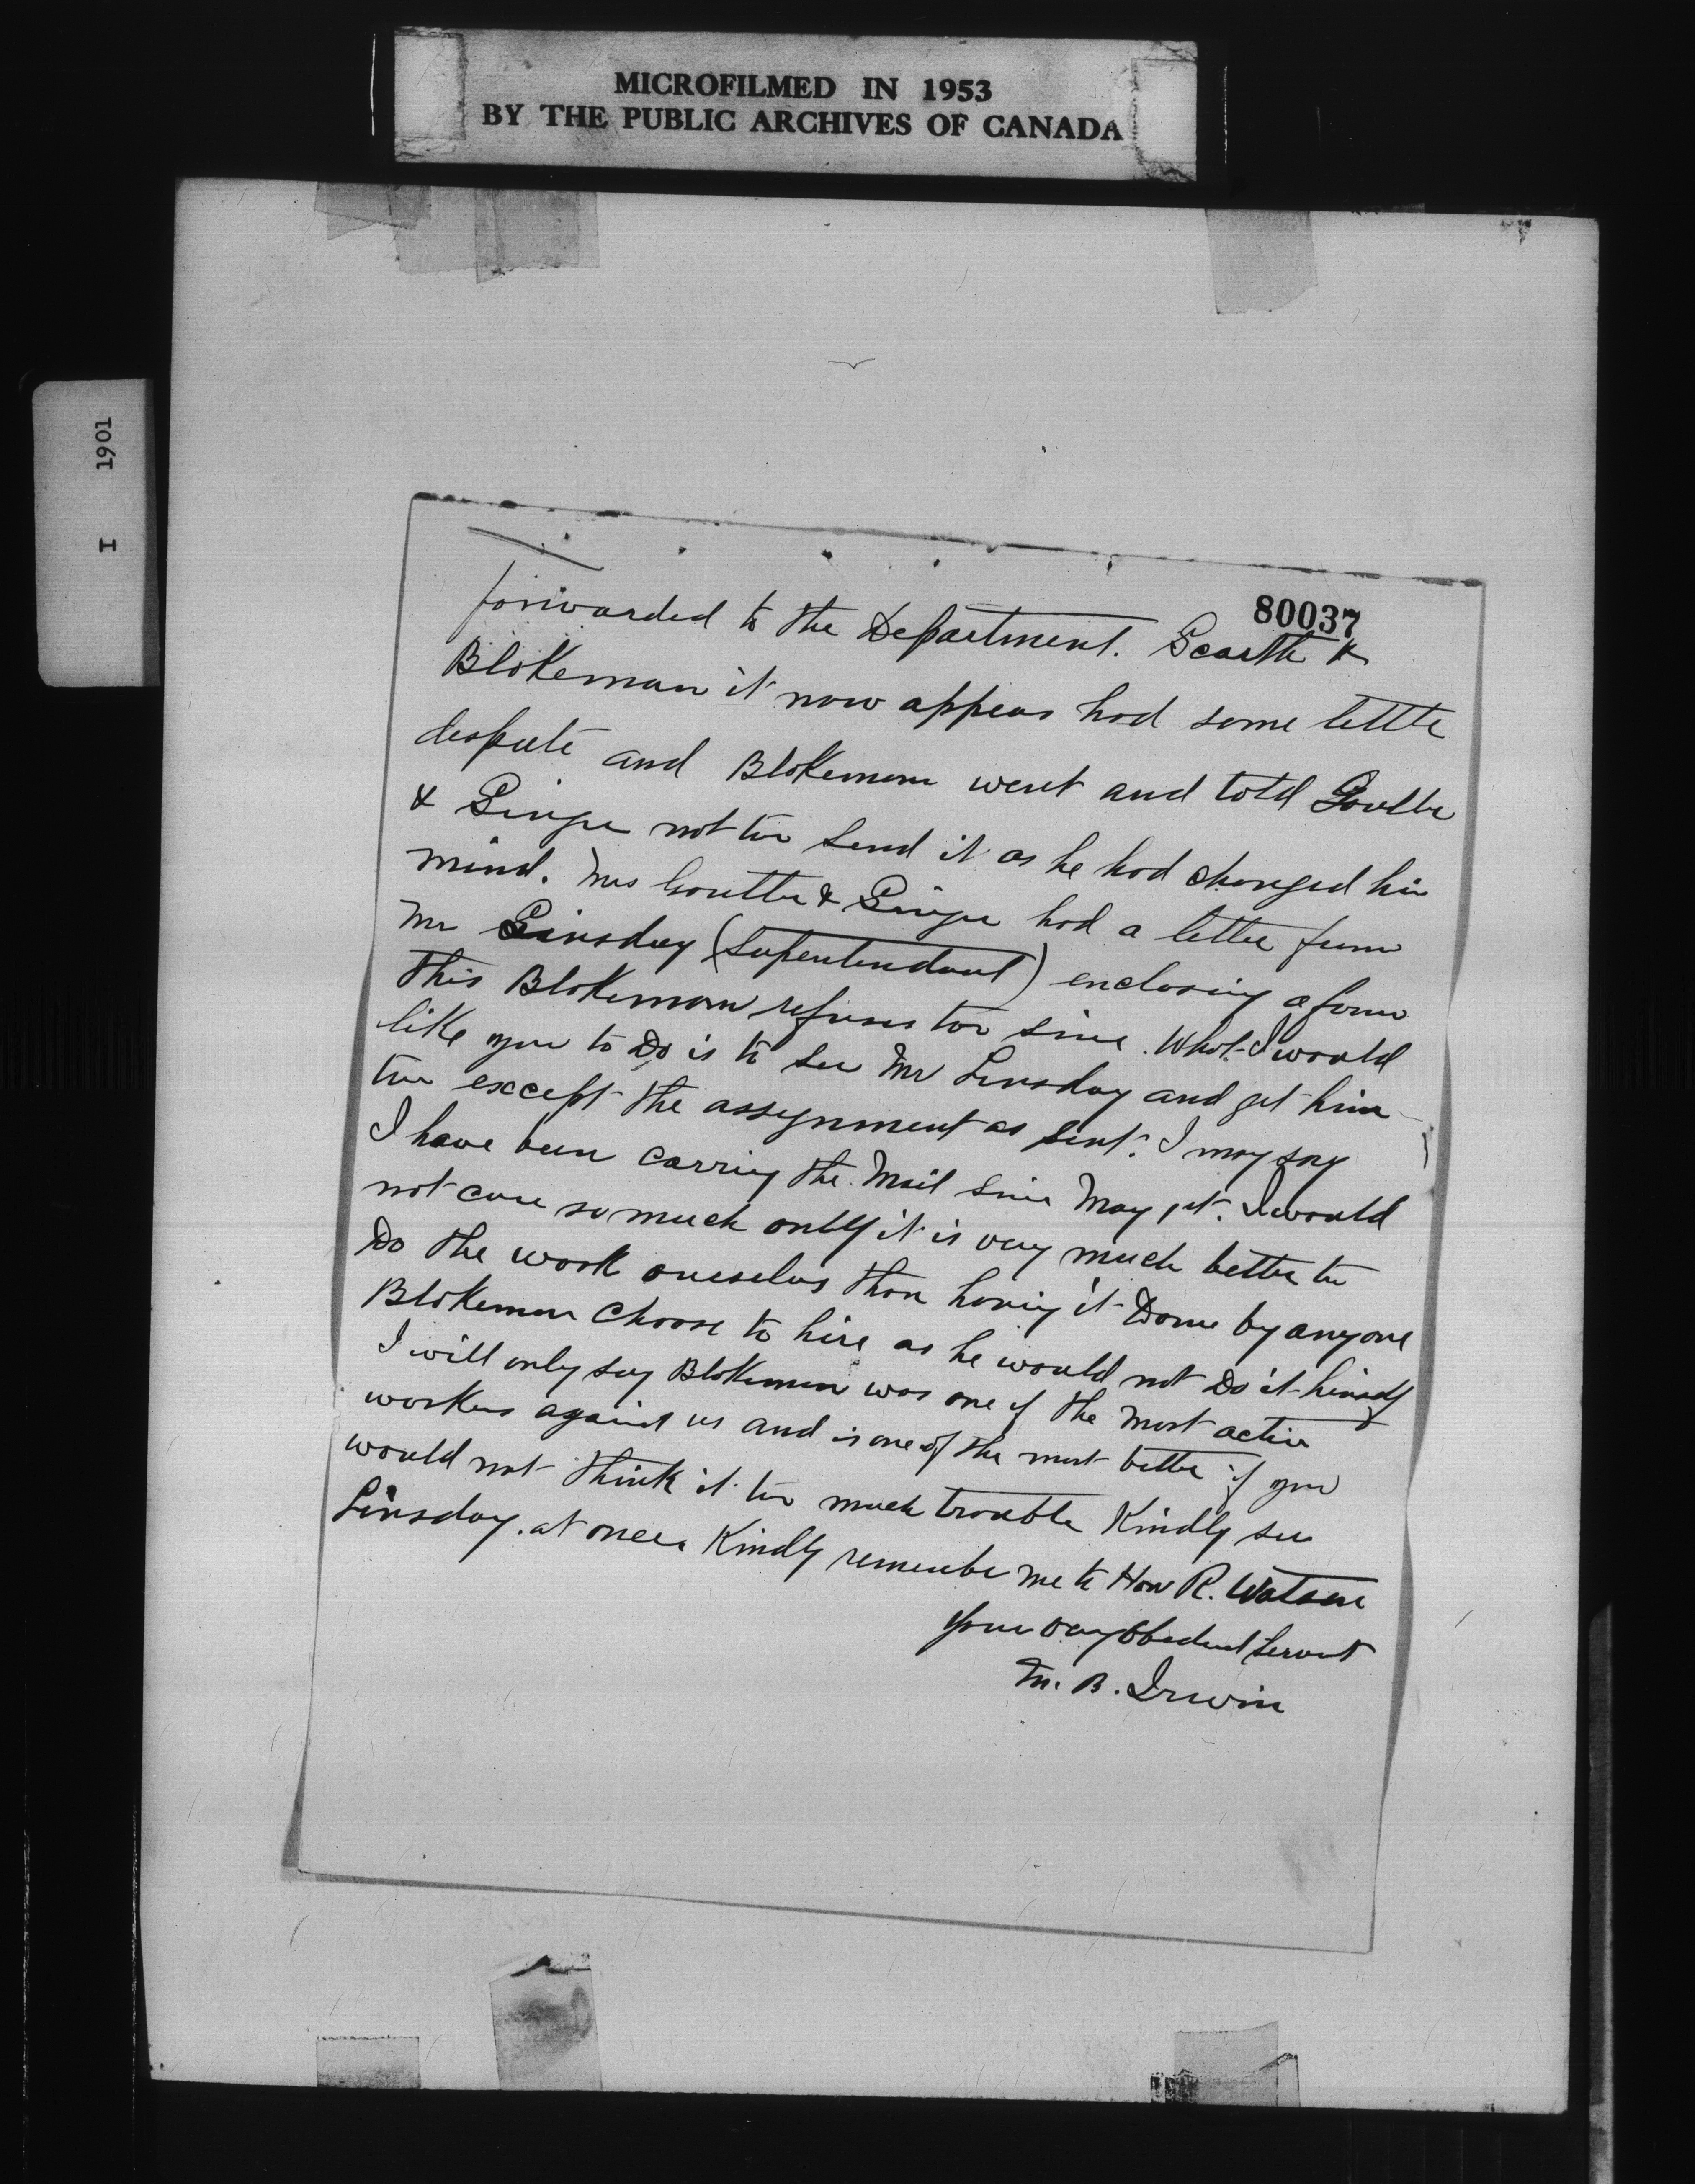 MICROFILMED IN 1953
BY THE PUBLIC ARCHIVES OF CANADA
I 1901
80037
forwarded to the Department. Scarth &
Blakeman it now appears had some little
despute and Blakeman went and told
& not too send it as he had changed his
mind. & had a letter from
Mr Linsday (Supentendant) enclosing a form
this Blakeman refuses too sine. What I would
like you to Do is to see Mr Linsday and get him
too except the assynment as sent. I may say
I have been carriny the Mail since May 1st. I would
not care so much only it is very much better to
Do the work ourselves than having it Done by anyone
Blakeman choose to hire as he would not Do it himself
I will only say Blakeman was one of the most active
workers against us and is one of the most bitter if you
would not think it too much trouble Kindly see
Linsday. at once. Kindly remember me to Hon R. Watson
Your very Obedient Servant
M. B. Irwin